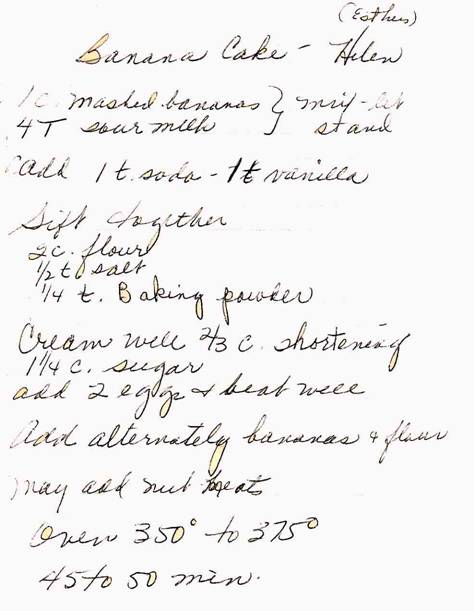 (Esthers)
Banana Cake - Helen
1 c. mashed bananas } mix - let
4 T sour milk } stand
add 1 t. soda - 1 t vanilla
Sift together
2 c. flour
1/2 t salt
1/4 t. Baking powder
Cream well 2/3 c. shortening
1 1/4 c. sugar
add 2 eggs & beat well
Add alternately bananas & flour
May add nut meats
Oven 350° to 375°
45 to 50 min.